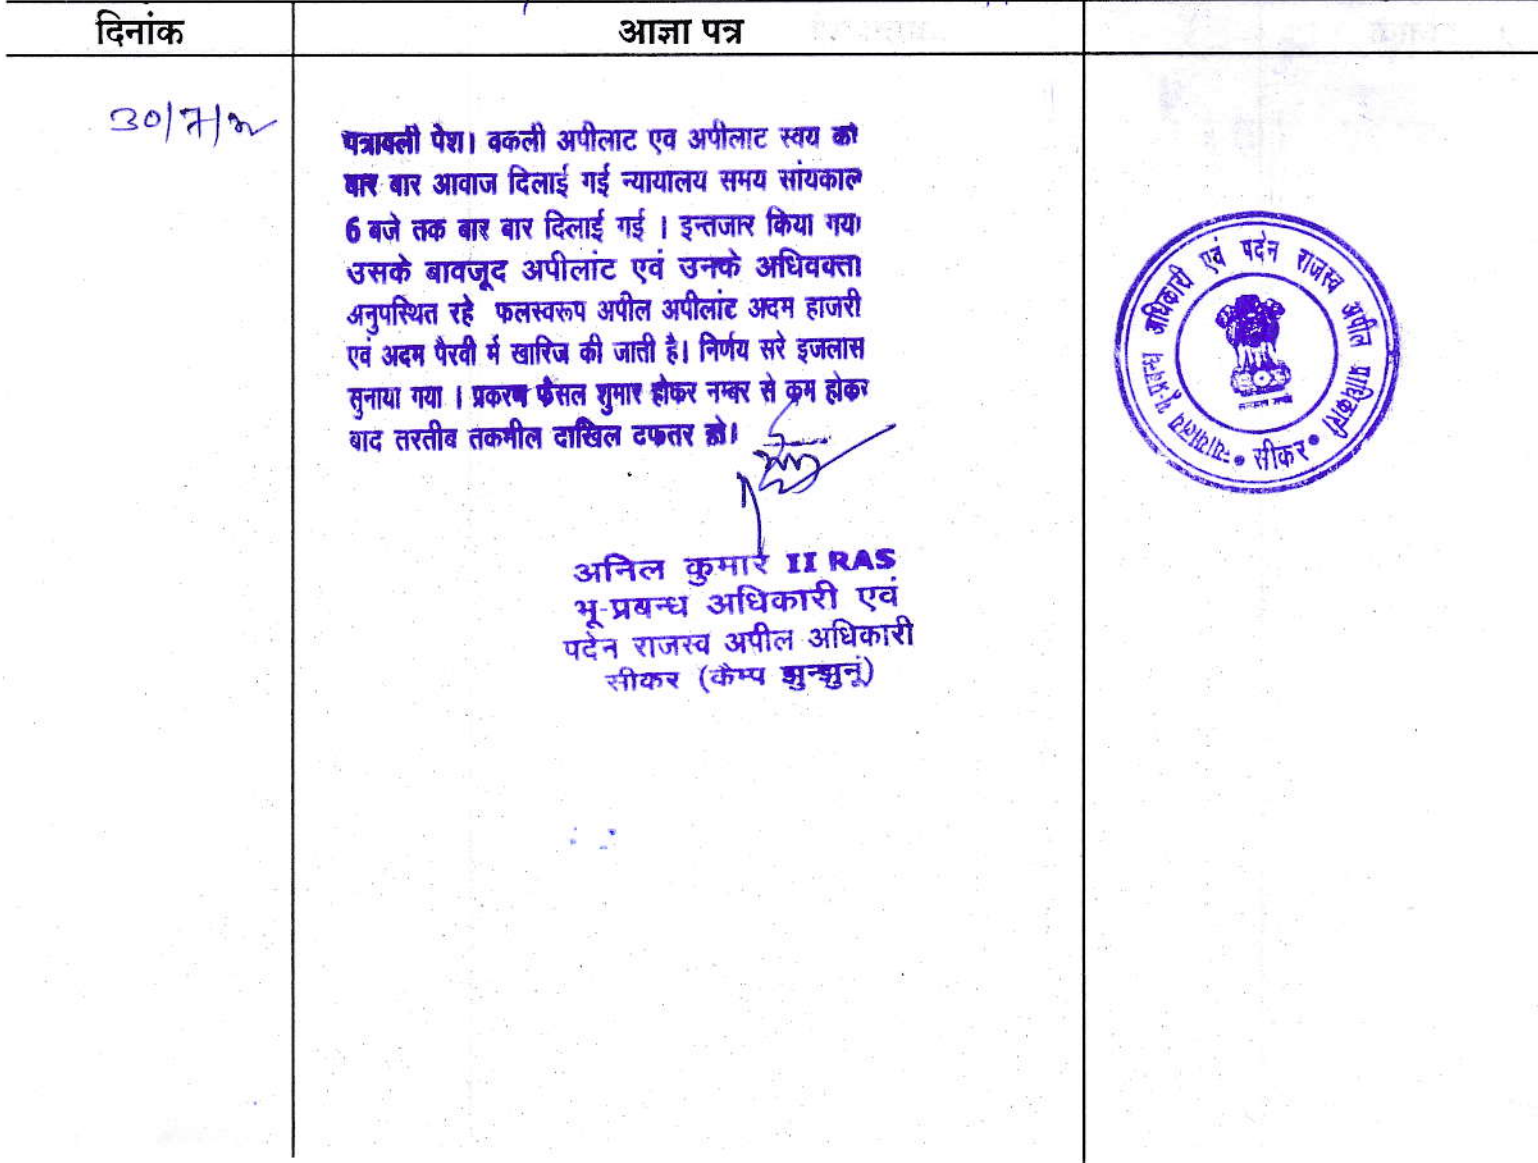 दिनांक
आज्ञा पत्र
30/7/
पत्रावली पेश। वकली अपीलाट एव अपीलाट स्वय को
बार बार आवाज दिलाई गई न्यायालय समय सांयकाल
6 बजे तक बार बार दिलाई गई । इन्तजार किया गया
उसके बावजूद अपीलांट एवं उनके अधिवक्ता
अनुपस्थित रहे फलस्वरूप अपील अपीलांट अदम हाजरी
एवं अदम पैरवी में खारिज की जाती है। निर्णय सरे इजलास
सुनाया गया । प्रकरण फैसल शुमार होकर नम्बर से कम होकर
बाद तरतीब तकमील दाखिल दफतर हो।
अनिल कुमार II RAS
भू-प्रबन्ध अधिकारी एवं
पदेन राजस्व अपील अधिकारी
सीकर (कैम्प झुन्झुनूं)
न्यायालय भू-प्रबन्ध अधिकारी एवं पदेन राजस्व अपील प्राधिकारी
• सीकर •